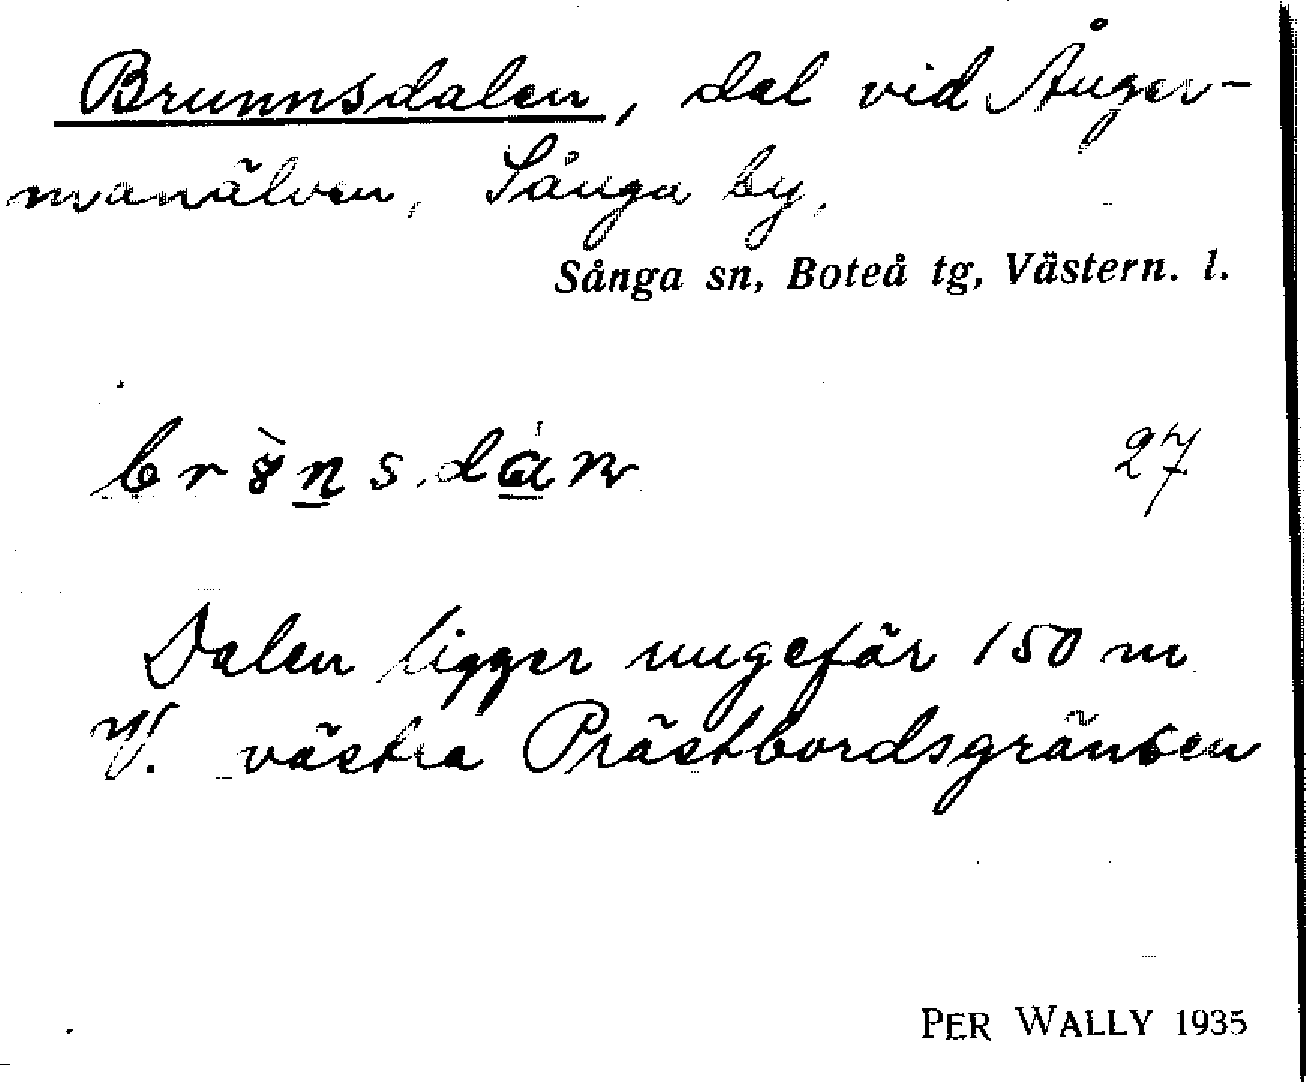 Brunnsdalen, dal vid Ånger-
manälven, Sånga by.
Sånga sn, Boteå tg, Västern. l.
27
Dalen ligger ungefär 150 m
V. västra Prästbordsgränsen
PER WALLY 1935